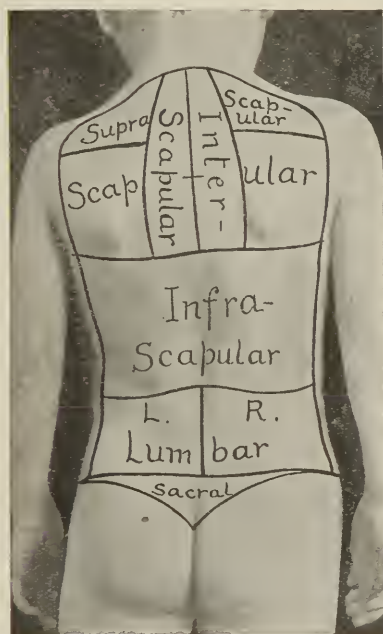 Supra
Scap-
ular
Scapular
Inter-
Scap
ular
Infra-
Scapular
L. R.
Lum bar
Sacral